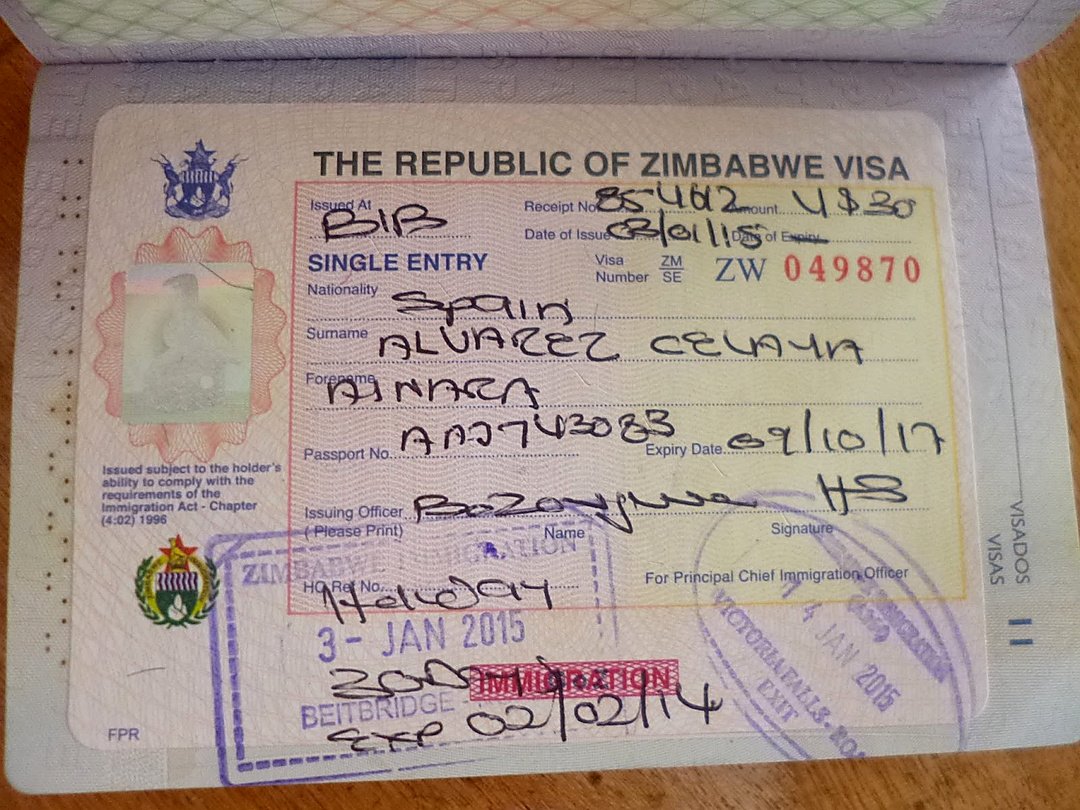 THE REPUBLIC OF ZIMBABWE VISA
Issued At BIB Receipt No 854612 Amount US$30
Date of Issue 03/01/15 Date of Expiry
SINGLE ENTRY Visa Number ZM SE ZW 049870
Nationality Spain
Surname ALVAREZ CELAYA
Forename AINARA
Passport No. AAJ743083 Expiry Date 09/10/17
Issuing Officer HB
( Please Print) Name Signature
HO Ref No. Holiday
For Principal Chief Immigration Officer
Issued subject to the holder's
ability to comply with the
requirements of the
Immigration Act - Chapter
(4:02) 1996
ZIMBABWE IMMIGRATION
3 - JAN 2015
30 Days IMMIGRATION
BEITBRIDGE
EXP 02/02/14
IMMIGRATION
14 JAN 2015
VICTORIA FALLS - ROAD
EXIT
FPR
VISADOS
VISAS
11